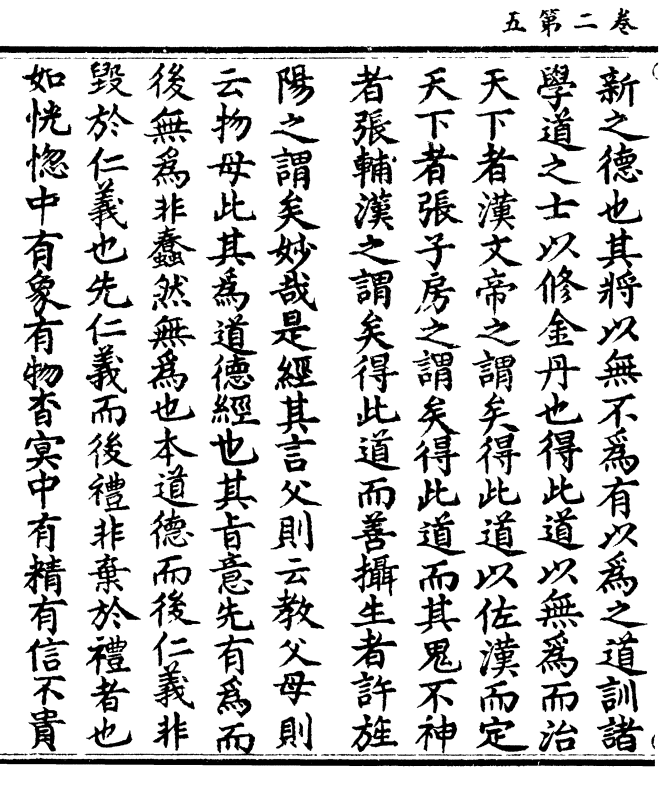 卷二第五
新之德也其將以無不爲有以爲之道訓諸
學道之士以修金丹也得此道以無爲而治
天下者漢文帝之謂矣得此道以佐漢而定
天下者張子房之謂矣得此道而其鬼不神
者張輔漢之謂矣得此道而善攝生者許旌
陽之謂矣妙哉是經其言父則云教父母則
云物母此其爲道德經也其旨意先有爲而
後無爲非蠢然無爲也本道德而後仁義非
毀於仁義也先仁義而後禮非棄於禮者也
如恍惚中有象有物杳冥中有精有信不貴